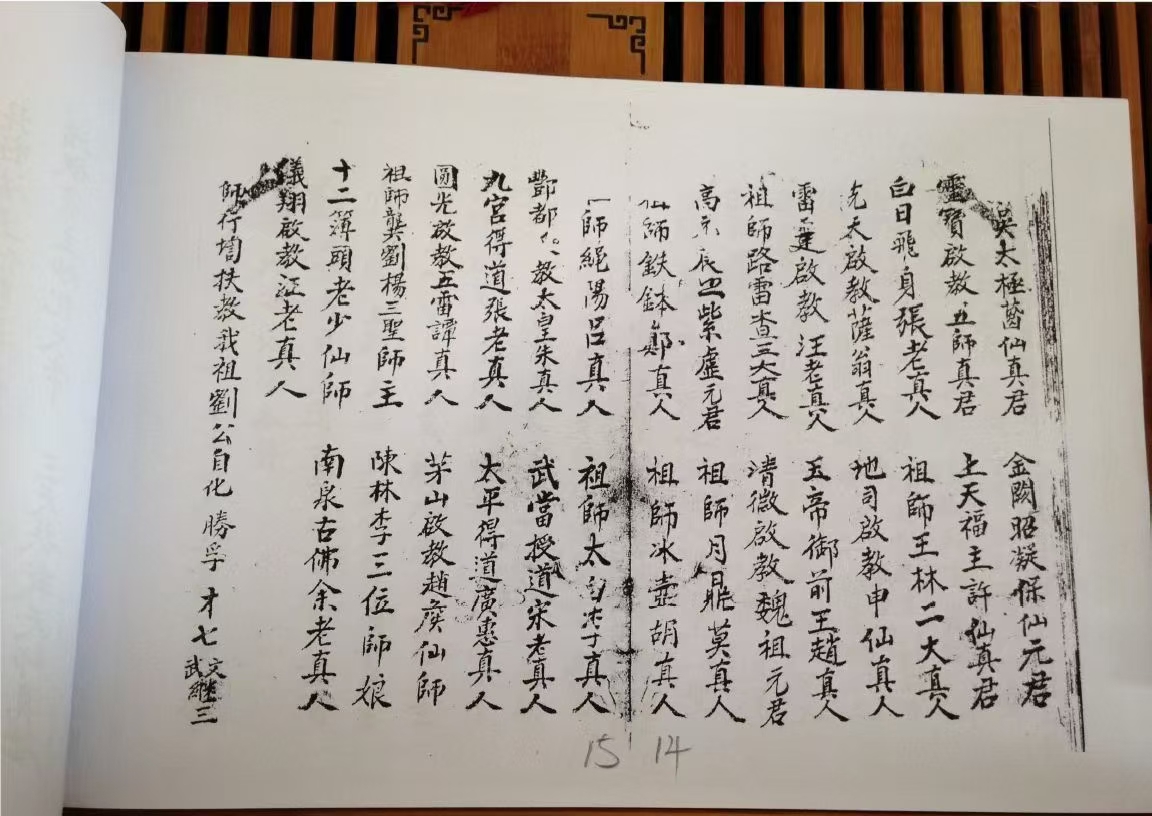 吳太極葛仙真君 金闕昭凝保仙元君
靈寶啟教五師真君 上天福主許仙真君
白日飛身張老真人 祖師王林二大真人
先天啟教薩翁真人 地司啟教申仙真人
雷霆啟教汪老真人 玉帝御前王趙真人
祖師路雷查三大真人 清微啟教魏祖元君
高 紫虛元君 祖師月鼎莫真人
師鉄鉢鄭真人 祖師冰壺胡真人
師純陽呂真人 祖師太白李真人
酆都 教太皇朱真人 武當授道宋老真人
九宮得道張老真人 太平得道廣惠真人
圓光啟教五雷譚真人 茅山啟教趙侯仙師
祖師龔劉楊三聖師主 陳林李三位師娘
十二簿頭老少仙師 南泉古佛余老真人
儀翔啟教江老真人
師行壇扶教我祖劉公自化 勝孚 才七 文継三
武
15 14